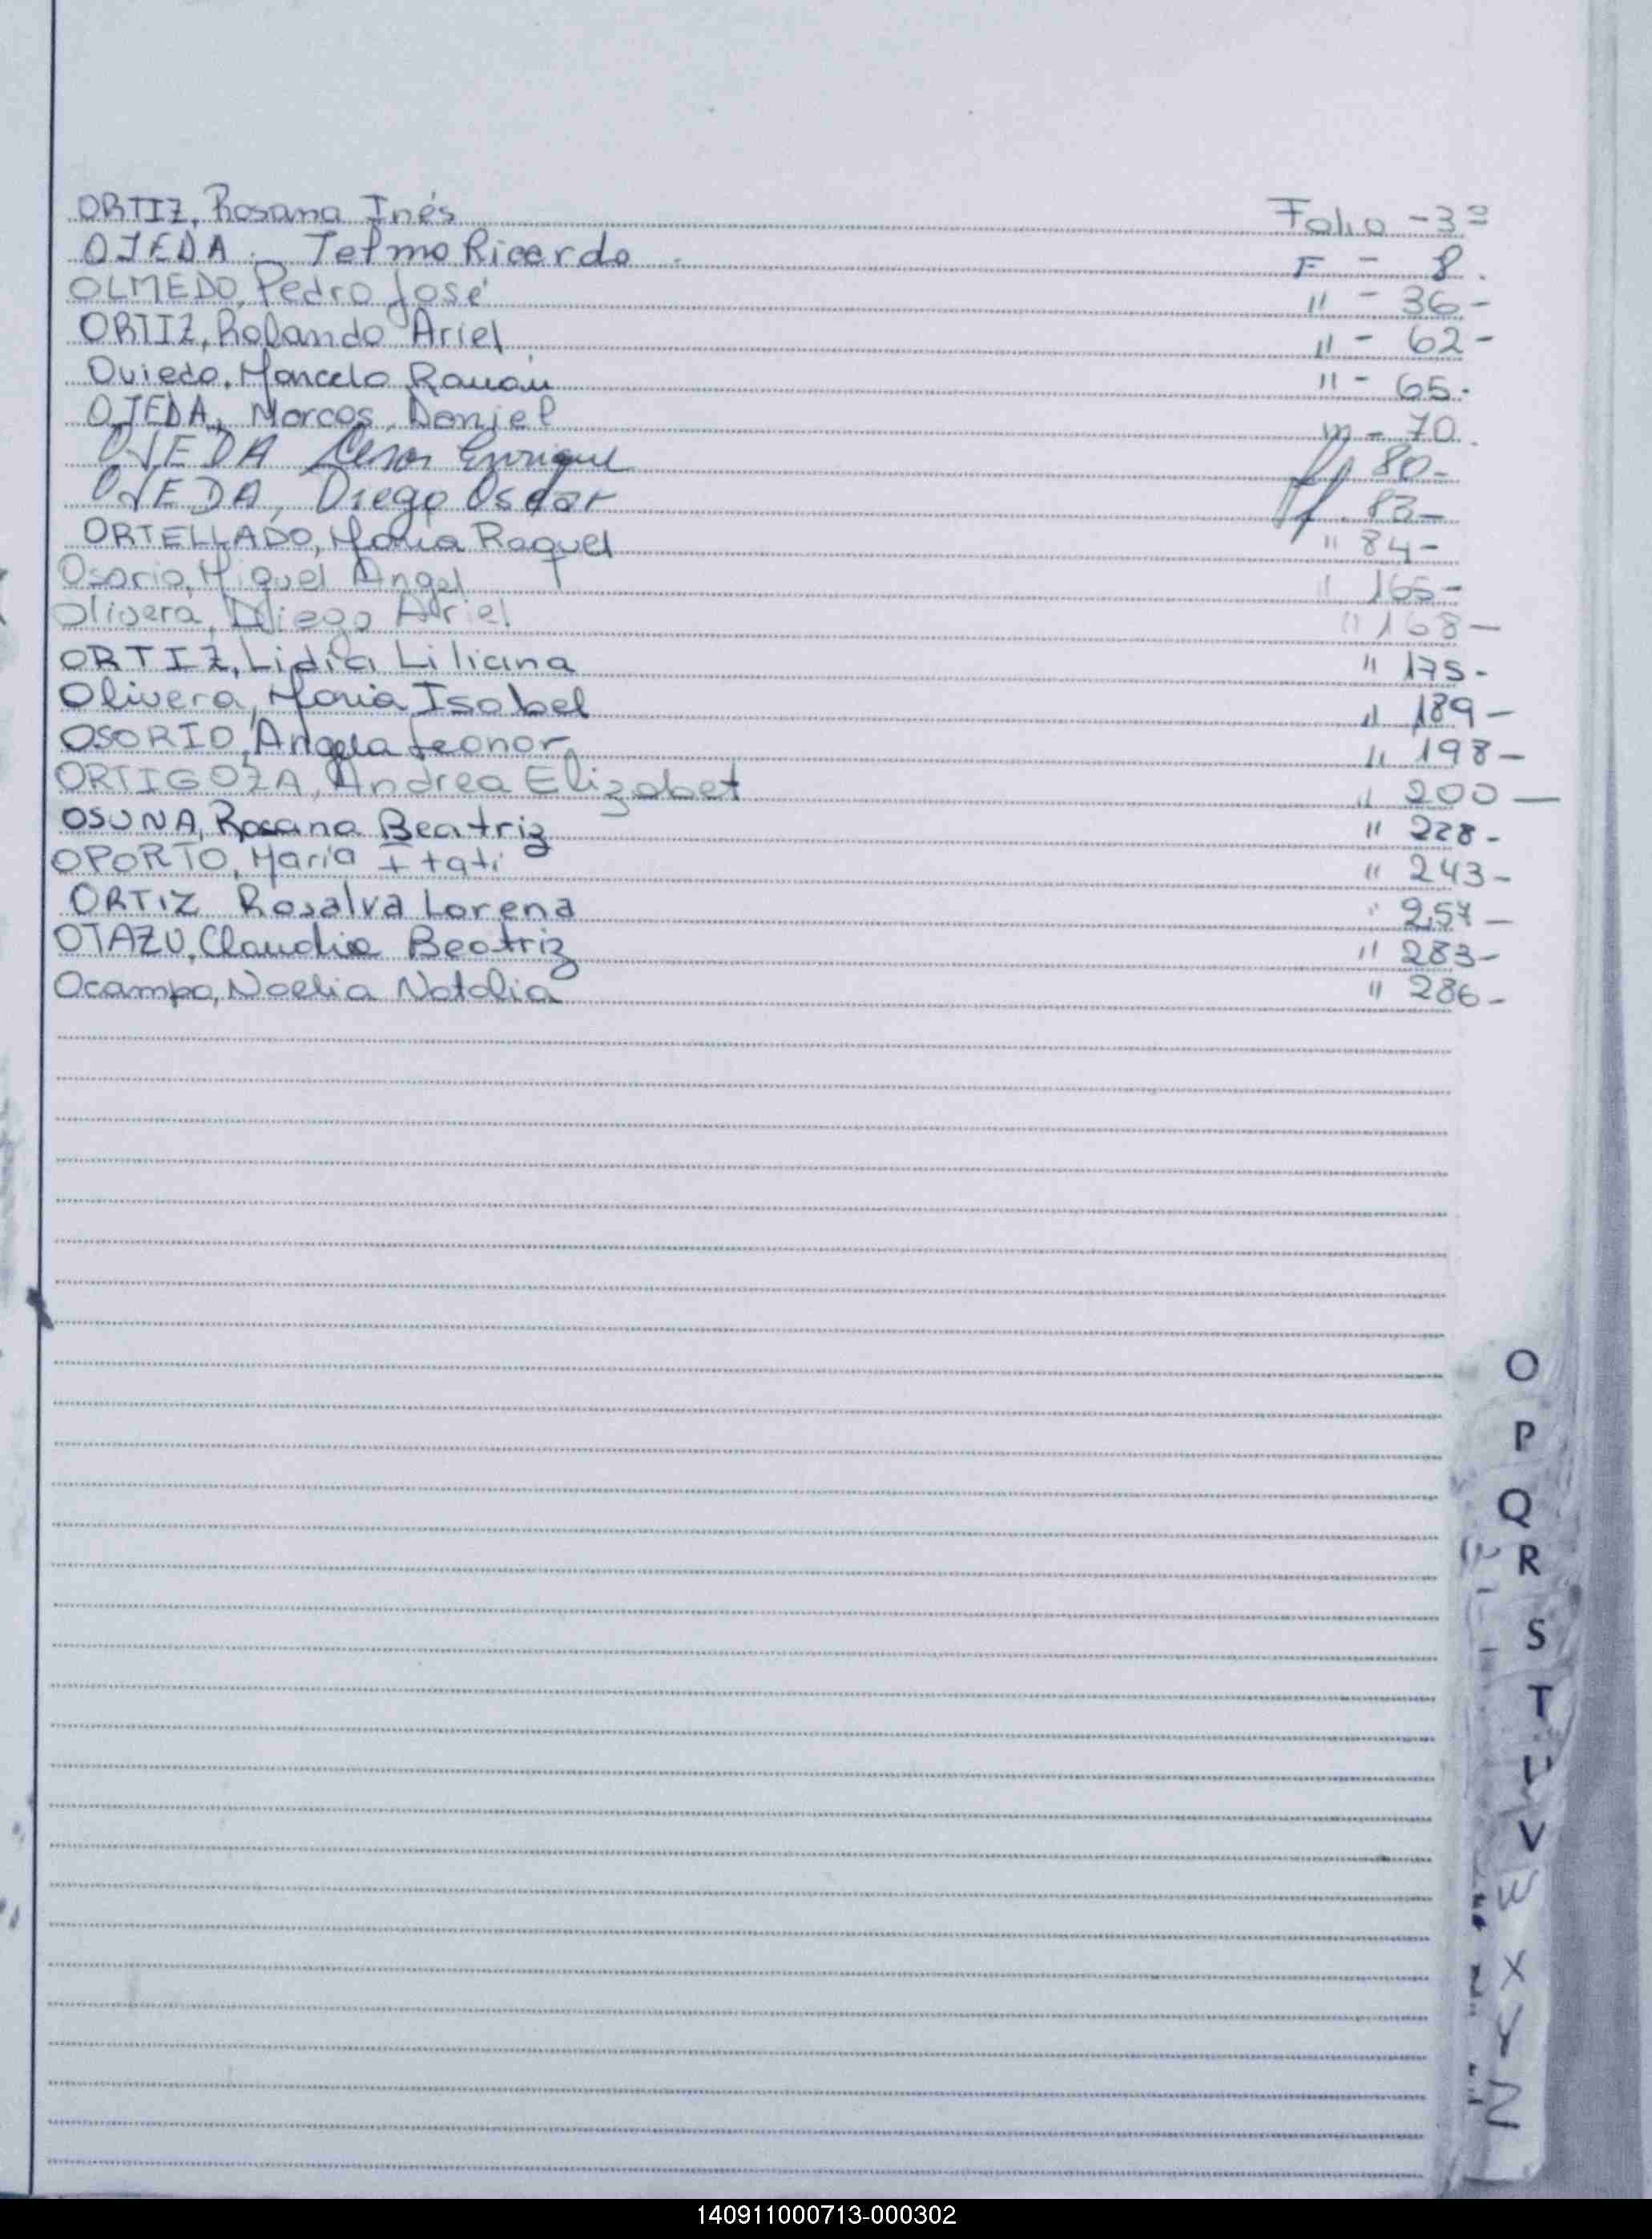 ORTIZ, Rosana Inés Folio - 3º
OJEDA. Telmo Ricardo - F - 8.
OLMEDO, Pedro José " - 36 -
ORTIZ, Rolando Ariel " - 62 -
Oviedo, Marcelo Ramón " - 65.
OJEDA, Marcos, Daniel " - 70.
OJEDA Cesar Enrique 80 -
OJEDA, Diego Oscar 83 -
ORTELLADO, María Raquel " 84 -
Osorio, Miguel Angel " 165 -
Olivera, Diego Adriel " 168 -
ORTIZ, Lidia Liliana " 175 -
Olivera, María Isabel " 189 -
OSORIO, Angela Leonor " 198 -
ORTIGOZA, Andrea Elizabet " 200 -
OSUNA, Rosana Beatriz " 228 -
OPORTO, María Itatí " 243 -
ORTIZ Rosalva Lorena " 257 -
OTAZU, Claudia Beatriz " 283 -
Ocampo, Noelia Natalia " 286 -
O
P
Q
R
S
T
U
V
W
X
Y
Z
140911000713-000302